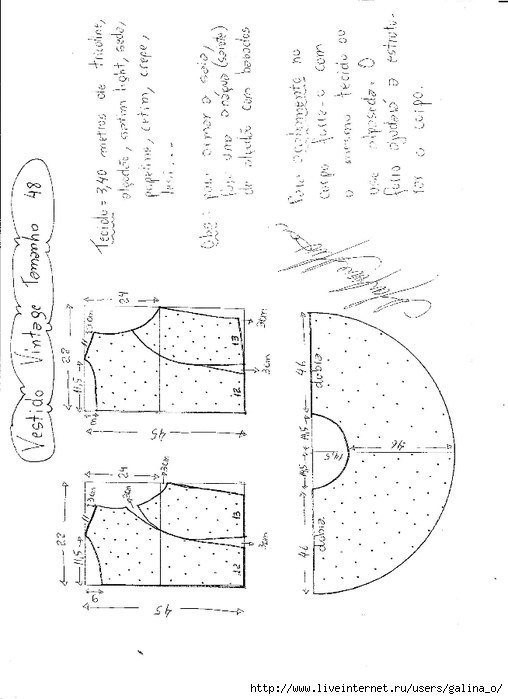 Vestido Vintage Tamanho 48
Tecido = 3,40 metros de tricoline,
algodão, cetim light, seda,
popeline, cetim, crepe,
Obs: para armar a saia,
faça uma anágua (saiote)
de algodão com babados
Para acabamento no
corpo forre-o com
o mesmo tecido ou
use alpaseda. O
forro ajudará a estrutu-
rar o corpo.
22
11,5
24
13cm
3cm
45
13
12
3cm
3cm
22
11,5
24
13cm
2cm
3cm
9
45
13
12
3cm
46
dobra
14,5
14,5
46
14,5
dobra
46
http://www.liveinternet.ru/users/galina_o/